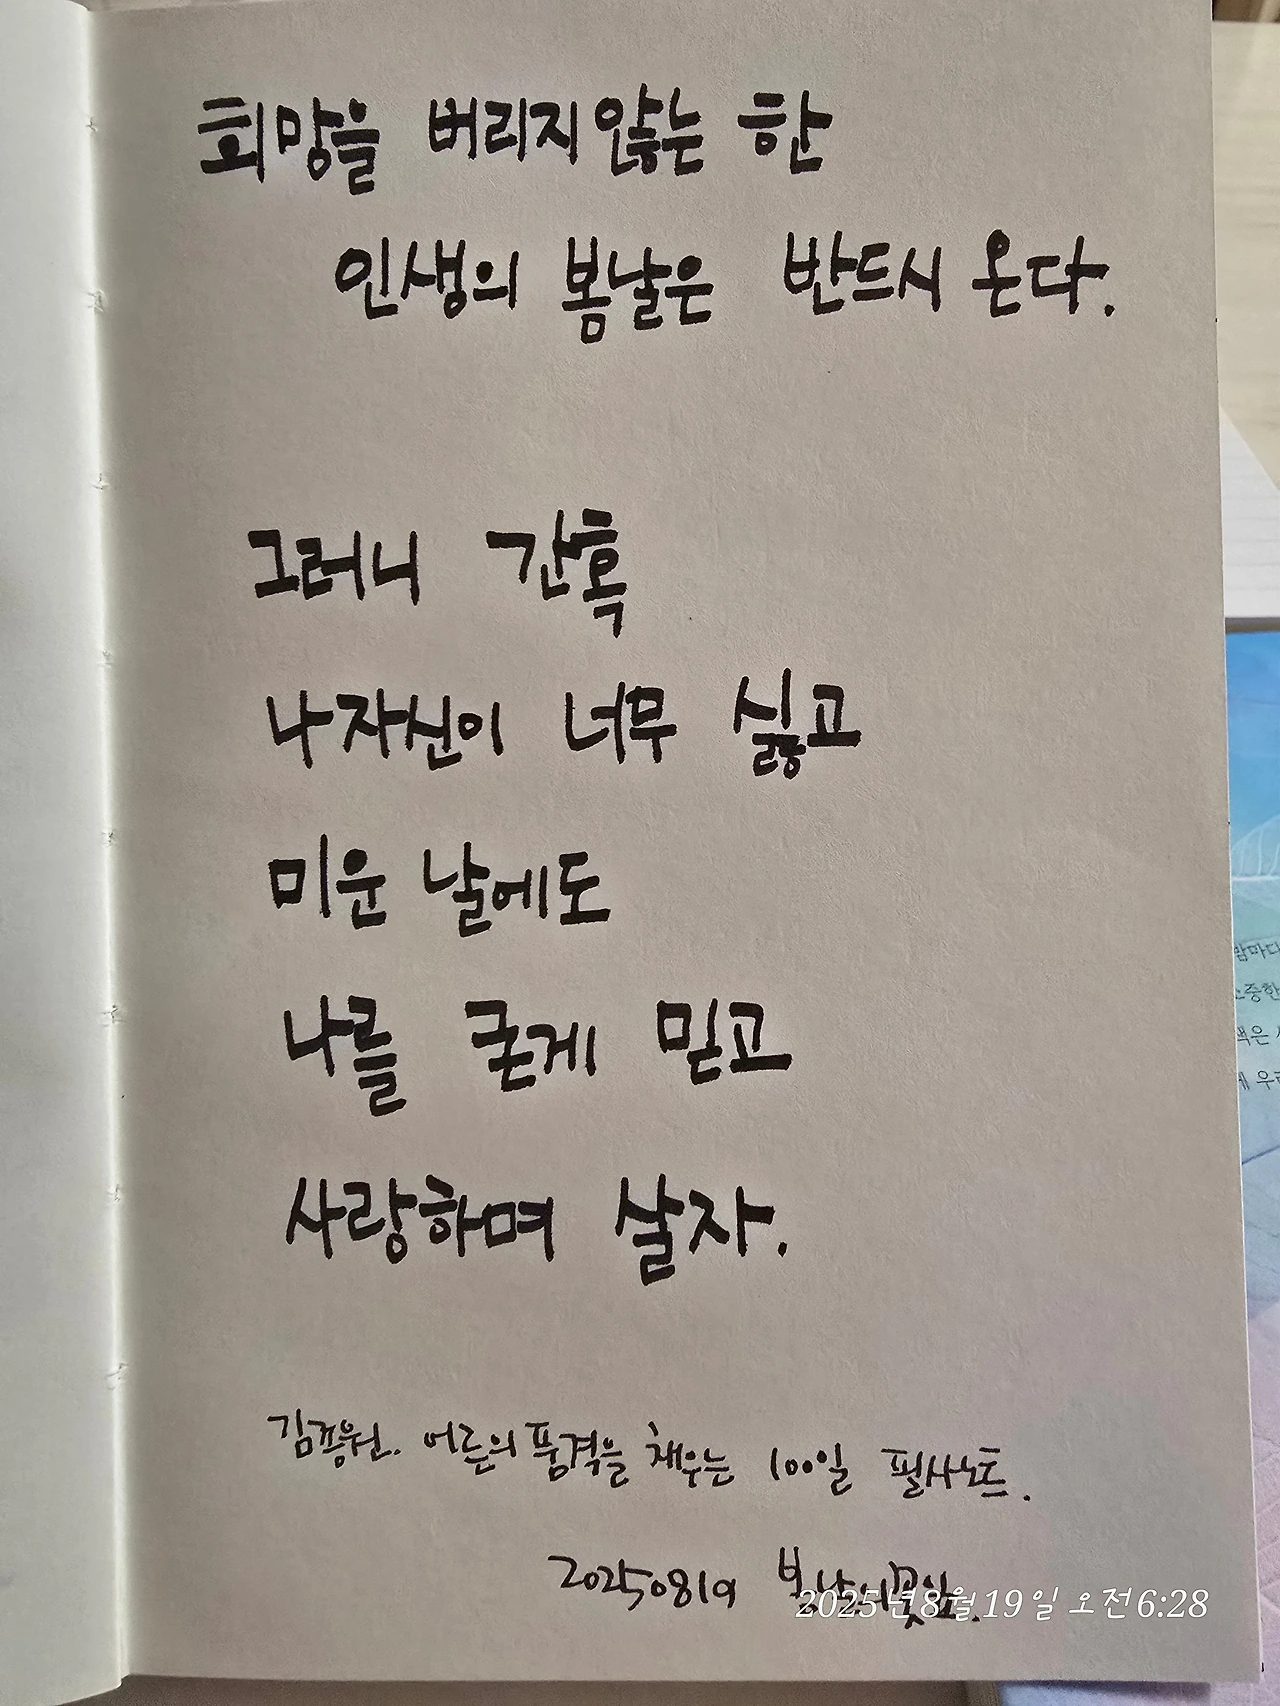 희망을 버리지 않는 한
인생의 봄날은 반드시 온다.
그러니 간혹
나 자신이 너무 싫고
미운 날에도
나를 굳게 믿고
사랑하며 살자.
김종원. 어른의 품격을 채우는 100일 필사노트.
20250819
2025년 8월 19일 오전 6:28
밤마다
소중한
색은
게 우리